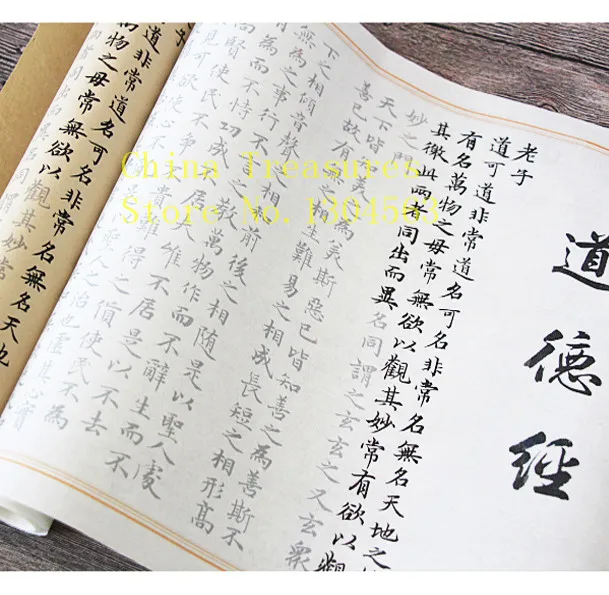 道德經
老子
道可道非常道名可名非常名無名天地之
有名萬物之母常無欲以觀其妙常有欲以觀
其徼此兩者同出而異名同謂之玄玄之又玄眾
妙之門
天下皆為美斯惡已皆知善之為善斯不
善已故有之相生難易之相成長短之相形高
下之相傾音聲之相前後之相隨是以聖人處
無為之事行不之萬物作而不辭生而不
為而不恃功成居夫惟不居是以不去
賢使民不爭貴難得之貨使民不為
見可欲使心人之治也虛其心實
子
道非常道名可名非常名無名天地
萬物之母常無欲以觀其妙常
China Treasures
Store No. 1304563